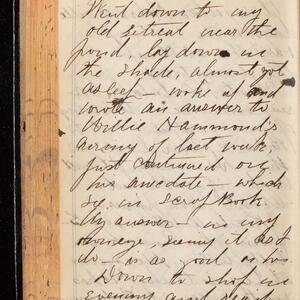 Went down to my
old retreat near the
pond, lay down in
the shade, almost got
asleep – woke up and
wrote an answer to
Willie Hammond's
of last week.
just continued on
his anecdote – which
see in Scrap Book
My answer – in my
it as I
do – is as good as his
Down to shop in
Evening